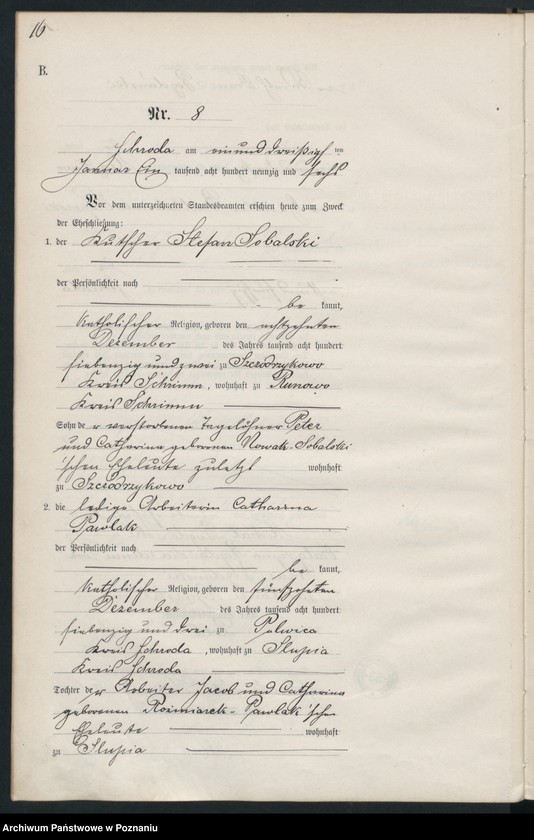 16
B.
Nr. 8
Schroda am einunddreißigsten
Januar Ein tausend acht hundert neunzig und sechs
Vor dem unterzeichneten Standesbeamten erschien heute zum Zweck
der Eheschließung:
1. der Kutscher Stefan Sobalski
der Persönlichkeit nach
be kannt,
katholischer Religion, geboren den achtzehnten
Dezember des Jahres tausend acht hundert
siebenzig und zwei zu Szczodrzykowo
Kreis Schrimm, wohnhaft zu Runowo
Kreis Schrimm
Sohn der verstorbenen Tagelöhner Peter
und Catharina geborenen Nowak-Sobalski
'schen Eheleute zuletzt wohnhaft
zu Szczodrzykowo
2. die ledige Arbeiterin Catharina
Pawlak
der Persönlichkeit nach
be kannt,
katholischer Religion, geboren den fünfzehnten
Dezember des Jahres tausend acht hundert
siebenzig und drei zu Polwica
Kreis Schroda, wohnhaft zu Slupia
Kreis Schroda
Tochter der Arbeiter Jacob und Catharina
geborenen Pawlak'schen
Eheleute wohnhaft
zu Slupia
Archiwum Państwowe w Poznaniu